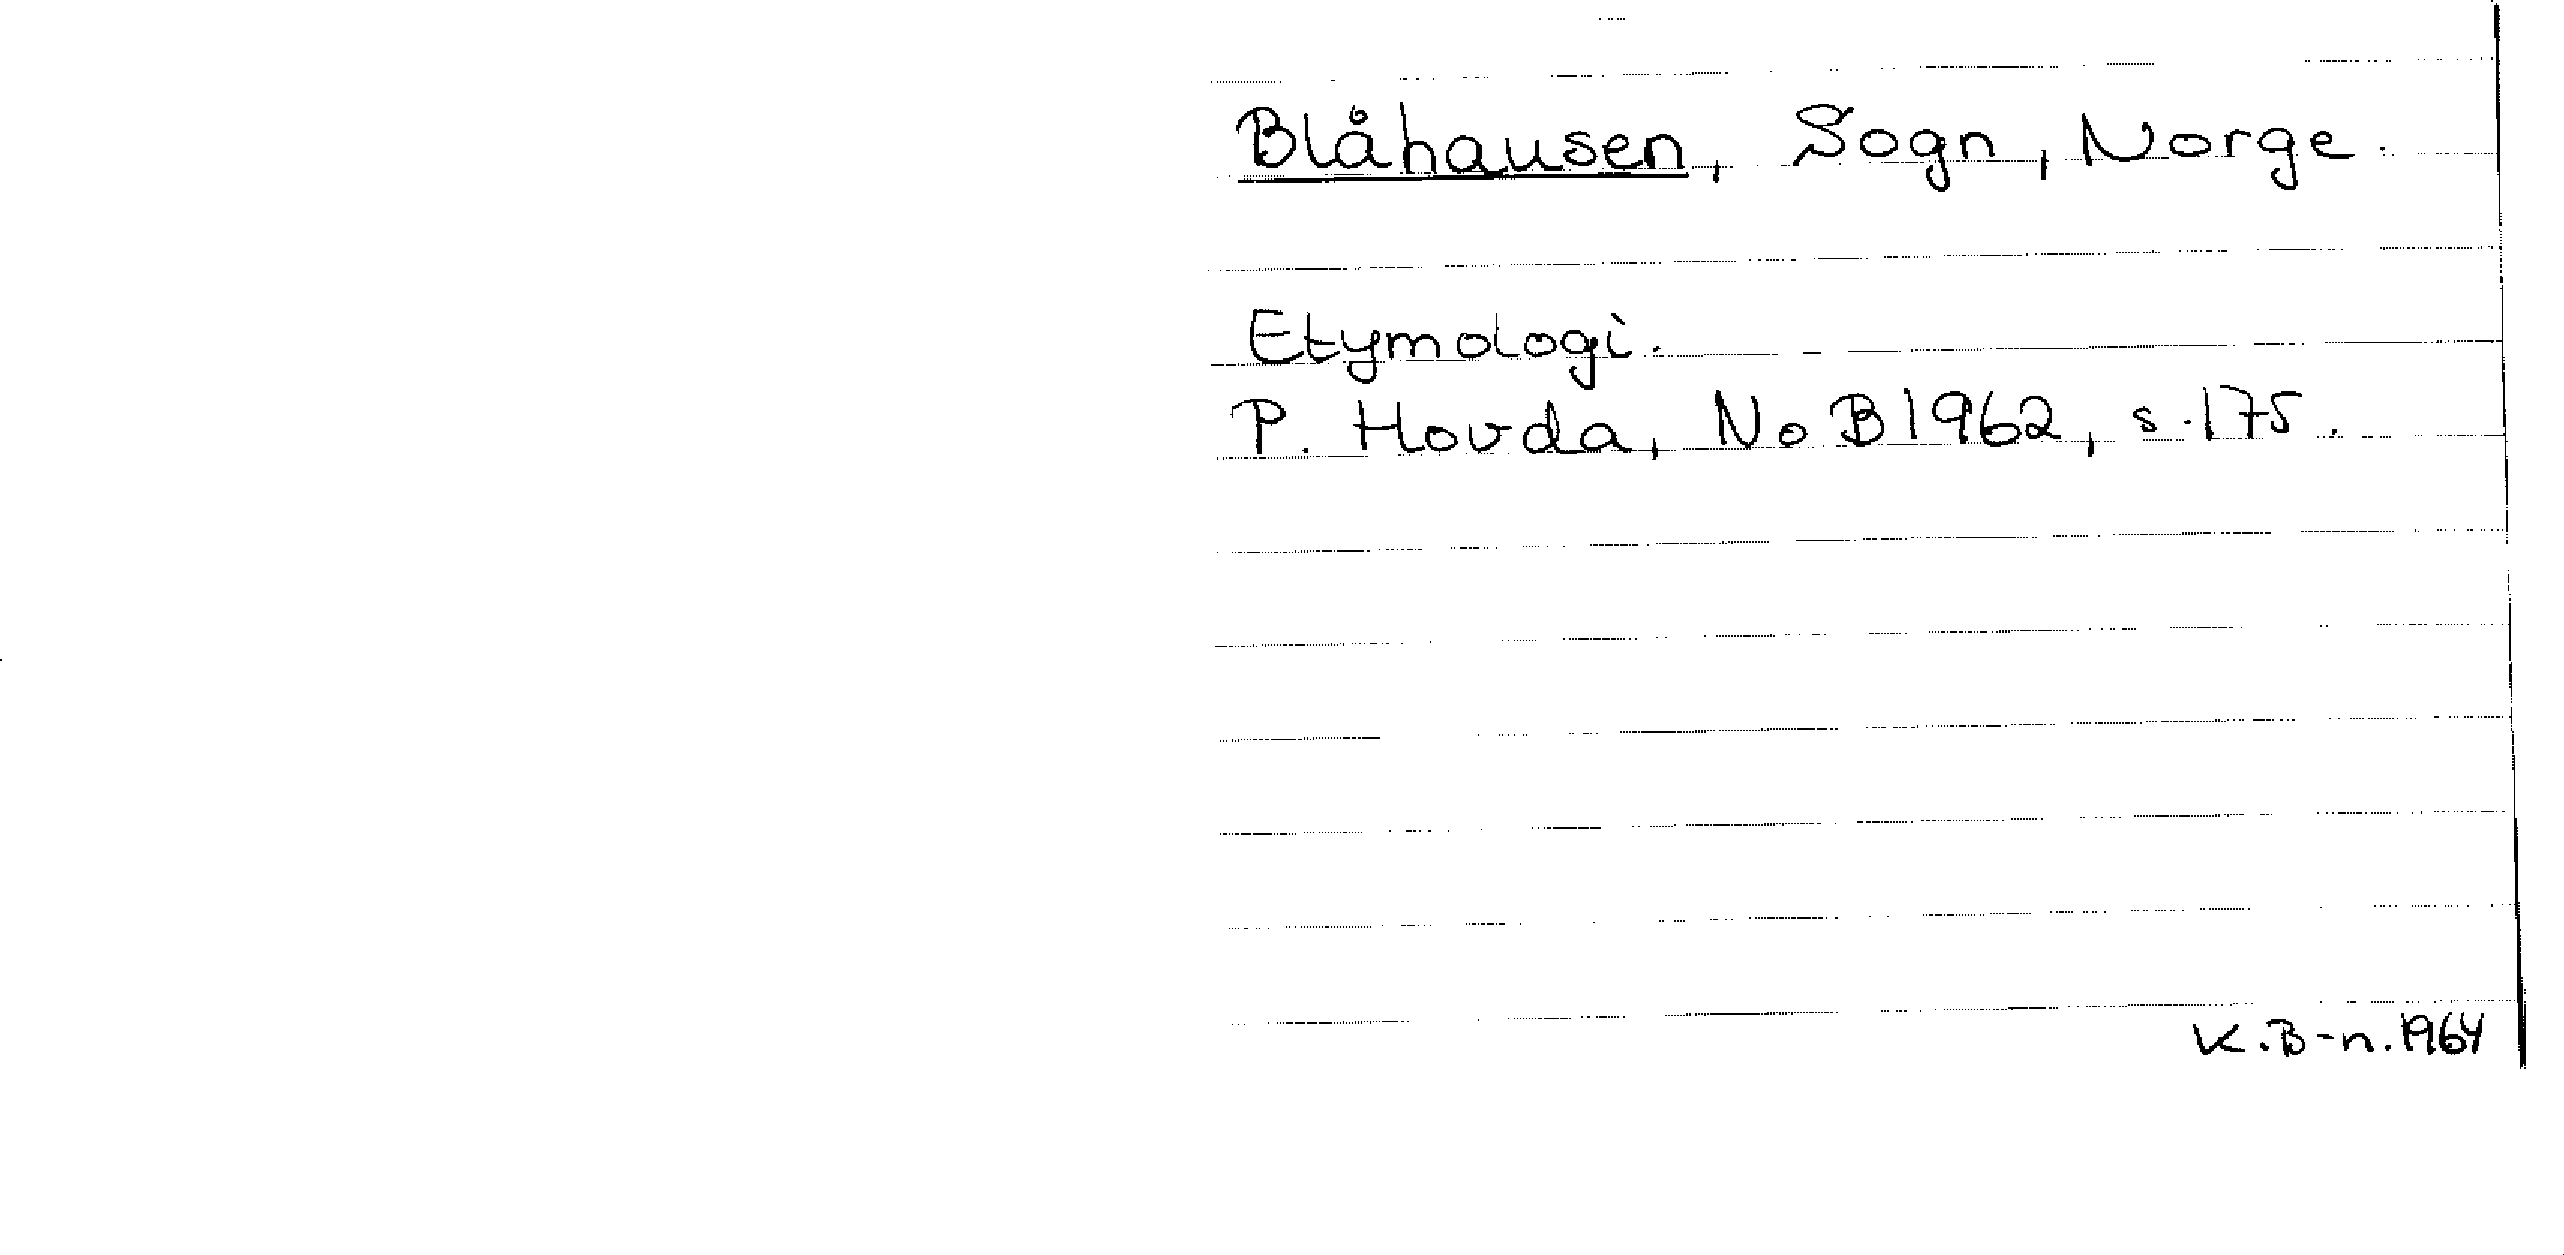 Blåhausen, Sogn, Norge.
Etymologi.
P. Hovda, NoB 1962, s. 175.
K.B-n. 1964